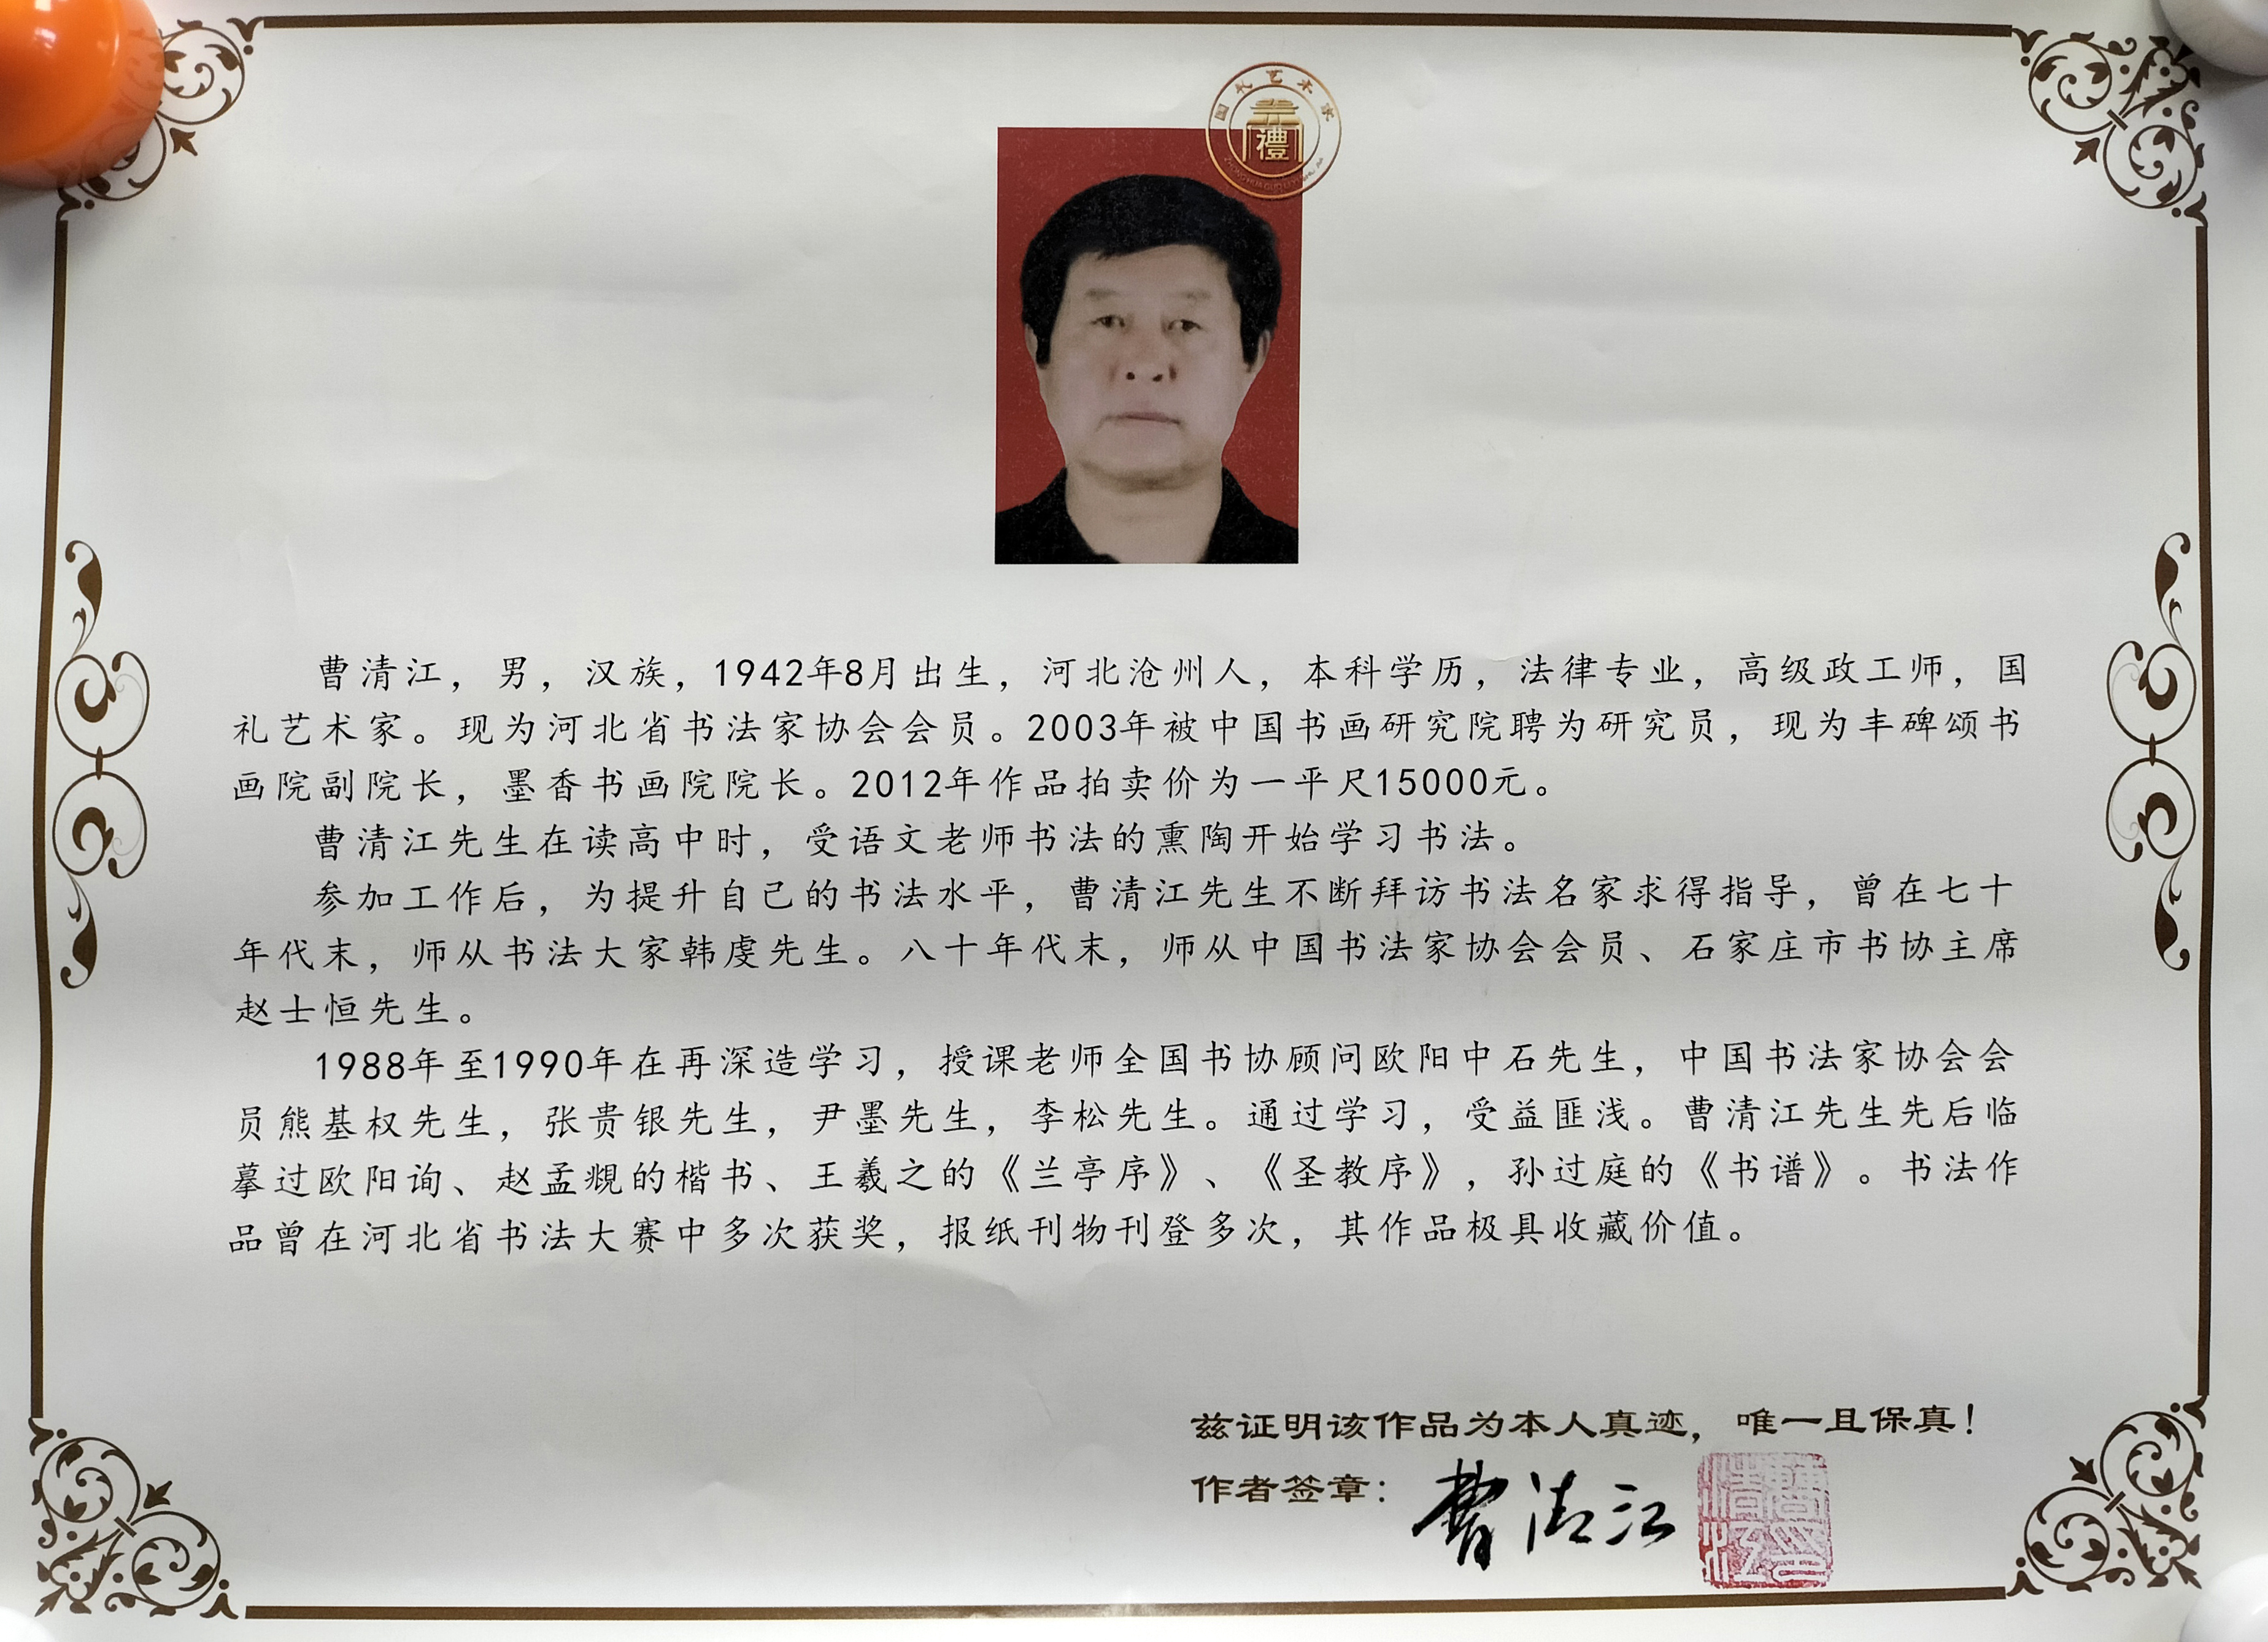 国礼艺术家
禮
曹清江，男，汉族，1942年8月出生，河北沧州人，本科学历，法律专业，高级政工师，国
礼艺术家。现为河北省书法家协会会员。2003年被中国书画研究院聘为研究员，现为丰碑颂书
画院副院长，墨香书画院院长。2012年作品拍卖价为一平尺15000元。
曹清江先生在读高中时，受语文老师书法的熏陶开始学习书法。
参加工作后，为提升自己的书法水平，曹清江先生不断拜访书法名家求得指导，曾在七十
年代末，师从书法大家韩虔先生。八十年代末，师从中国书法家协会会员、石家庄市书协主席
赵士恒先生。
1988年至1990年在再深造学习，授课老师全国书协顾问欧阳中石先生，中国书法家协会会
员熊基权先生，张贵银先生，尹墨先生，李松先生。通过学习，受益匪浅。曹清江先生先后临
摹过欧阳询、赵孟覜的楷书、王羲之的《兰亭序》、《圣教序》，孙过庭的《书谱》。书法作
品曾在河北省书法大赛中多次获奖，报纸刊物刊登多次，其作品极具收藏价值。
兹证明该作品为本人真迹，唯一且保真！
作者签章：曹清江